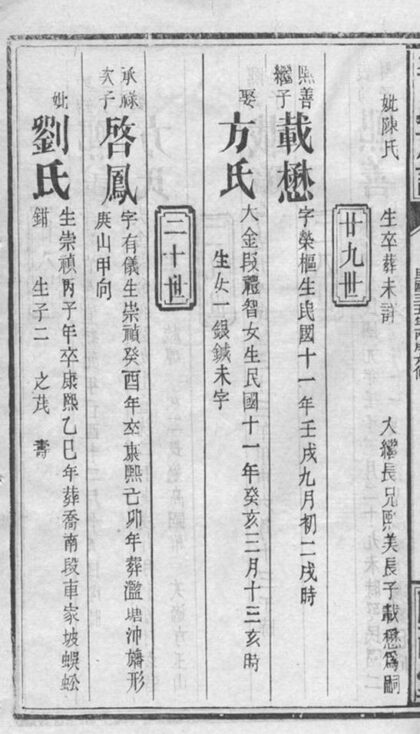 妣陳氏 生卒葬未詳 入繼長兄熙美長子載懋爲嗣
廿九世
熙善繼子 載懋 字榮樞生民國十一年壬戌九月初二戌時
娶 方氏 大金段禮智女生民國十一年癸亥三月十三亥時
生女一銀鍼未字
三十世
承祿次子 啓鳳 字有儀生崇禎癸酉年卒康熙己卯年葬濫塘沖旛形
庚山甲向
妣 劉氏 生崇禎丙子年卒康熙乙巳年葬喬南段車家坡蜈蚣
鉗 生子二 之茂 壽